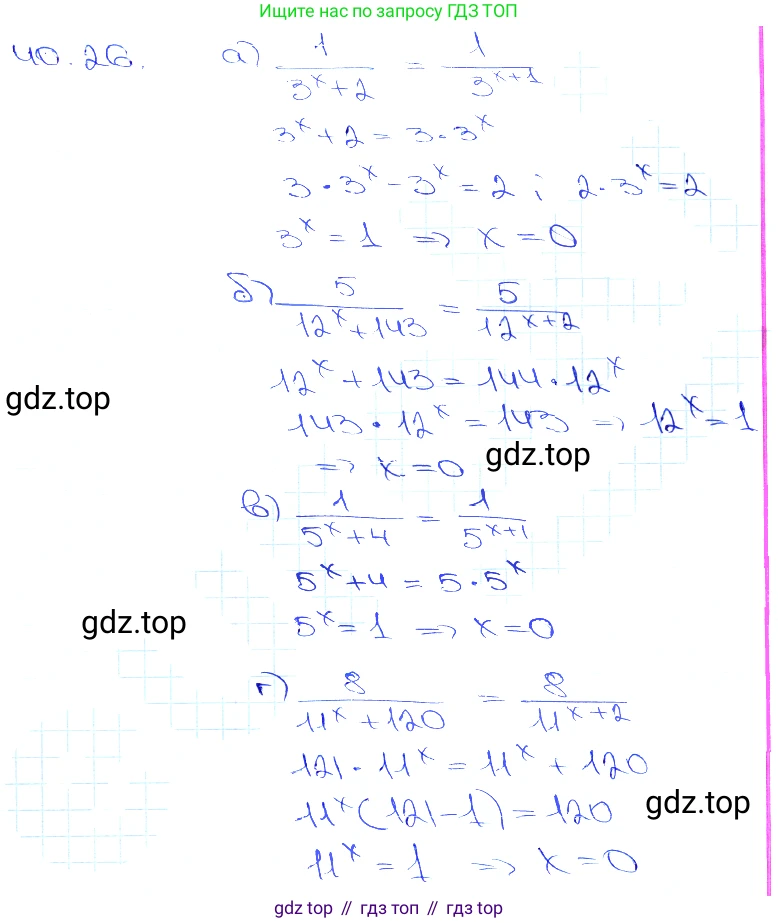 Ищите нас по запросу ГДЗ ТОП
40.26. а) 1/(3^x+2) = 1/3^(x+1)
3^x+2 = 3·3^x
3·3^x-3^x=2; 2·3^x=2
3^x=1 => x=0
б) 5/(12^x+143) = 5/12^(x+2)
12^x+143=144·12^x
gdz.top
143·12^x=143 => 12^x=1
=> x=0
gdz.top
в) 1/(5^x+4) = 1/5^(x+1)
5^x+4=5·5^x
gdz.top
5^x=1 => x=0
г) 8/(11^x+120) = 8/11^(x+2)
121·11^x=11^x+120
11^x(121-1)=120
gdz.top
11^x=1 => x=0
gdz top // гдз топ // гдз top